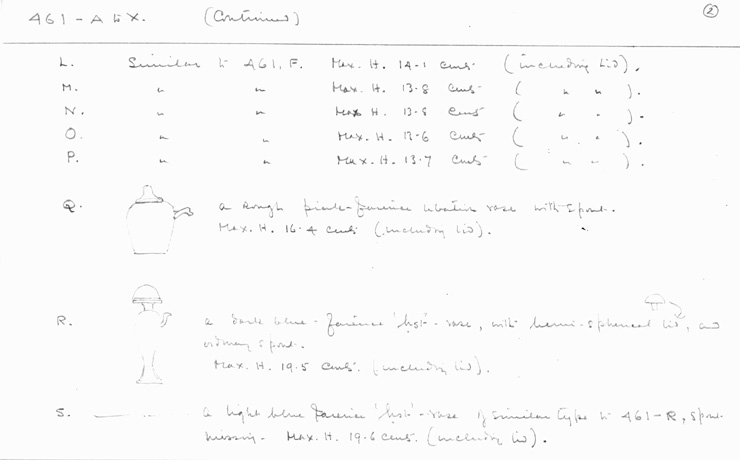 461 - A to X. (Continued) 2
L. Similar to 461, F. Max. H. 14.1 cents (including lid).
M. " " Max. H. 13.8 cents ( " " ).
N. " " Max H. 13.8 cents ( " " ).
O. " " Max. H. 13.6 cents ( " " ).
P. " " Max. H. 13.7 cents ( " " ).
Q. a rough faience libation vase with spout.
Max. H. 16.4 cents (including lid).
R. a dark blue-faience 'hst'-vase, with hemi-spherical lid, and
ordinary spout.
Max. H. 19.5 cents. (including lid).
S. a light blue faience 'hst'-vase of similar type to 461-R, spout
missing. Max. H. 19.6 cents. (including lid).